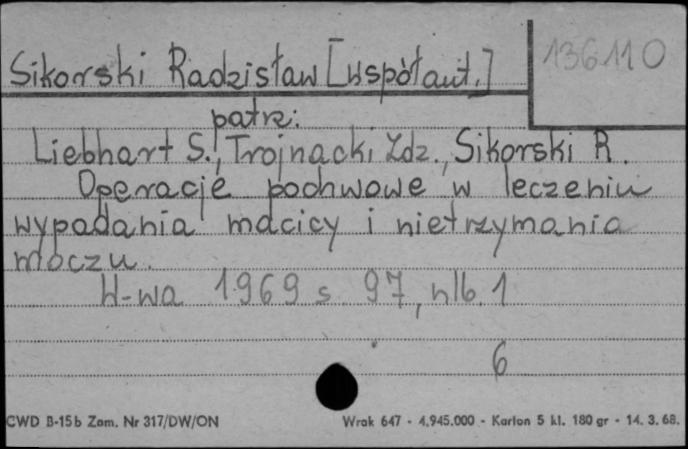 136110
Sikorski Radzisław [współaut.]
patrz:
Liebhart S., Trojnacki Zdz., Sikorski R.
Operacje pochwowe w leczeniu
wypadania macicy i nietrzymania
moczu.
W-wa 1969 s. 97, nlb. 1
6
CWD B-15b Zam. Nr 317/DW/ON Wrak 647 - 4.945.000 - Karton 5 kl. 180 gr - 14. 3. 68.